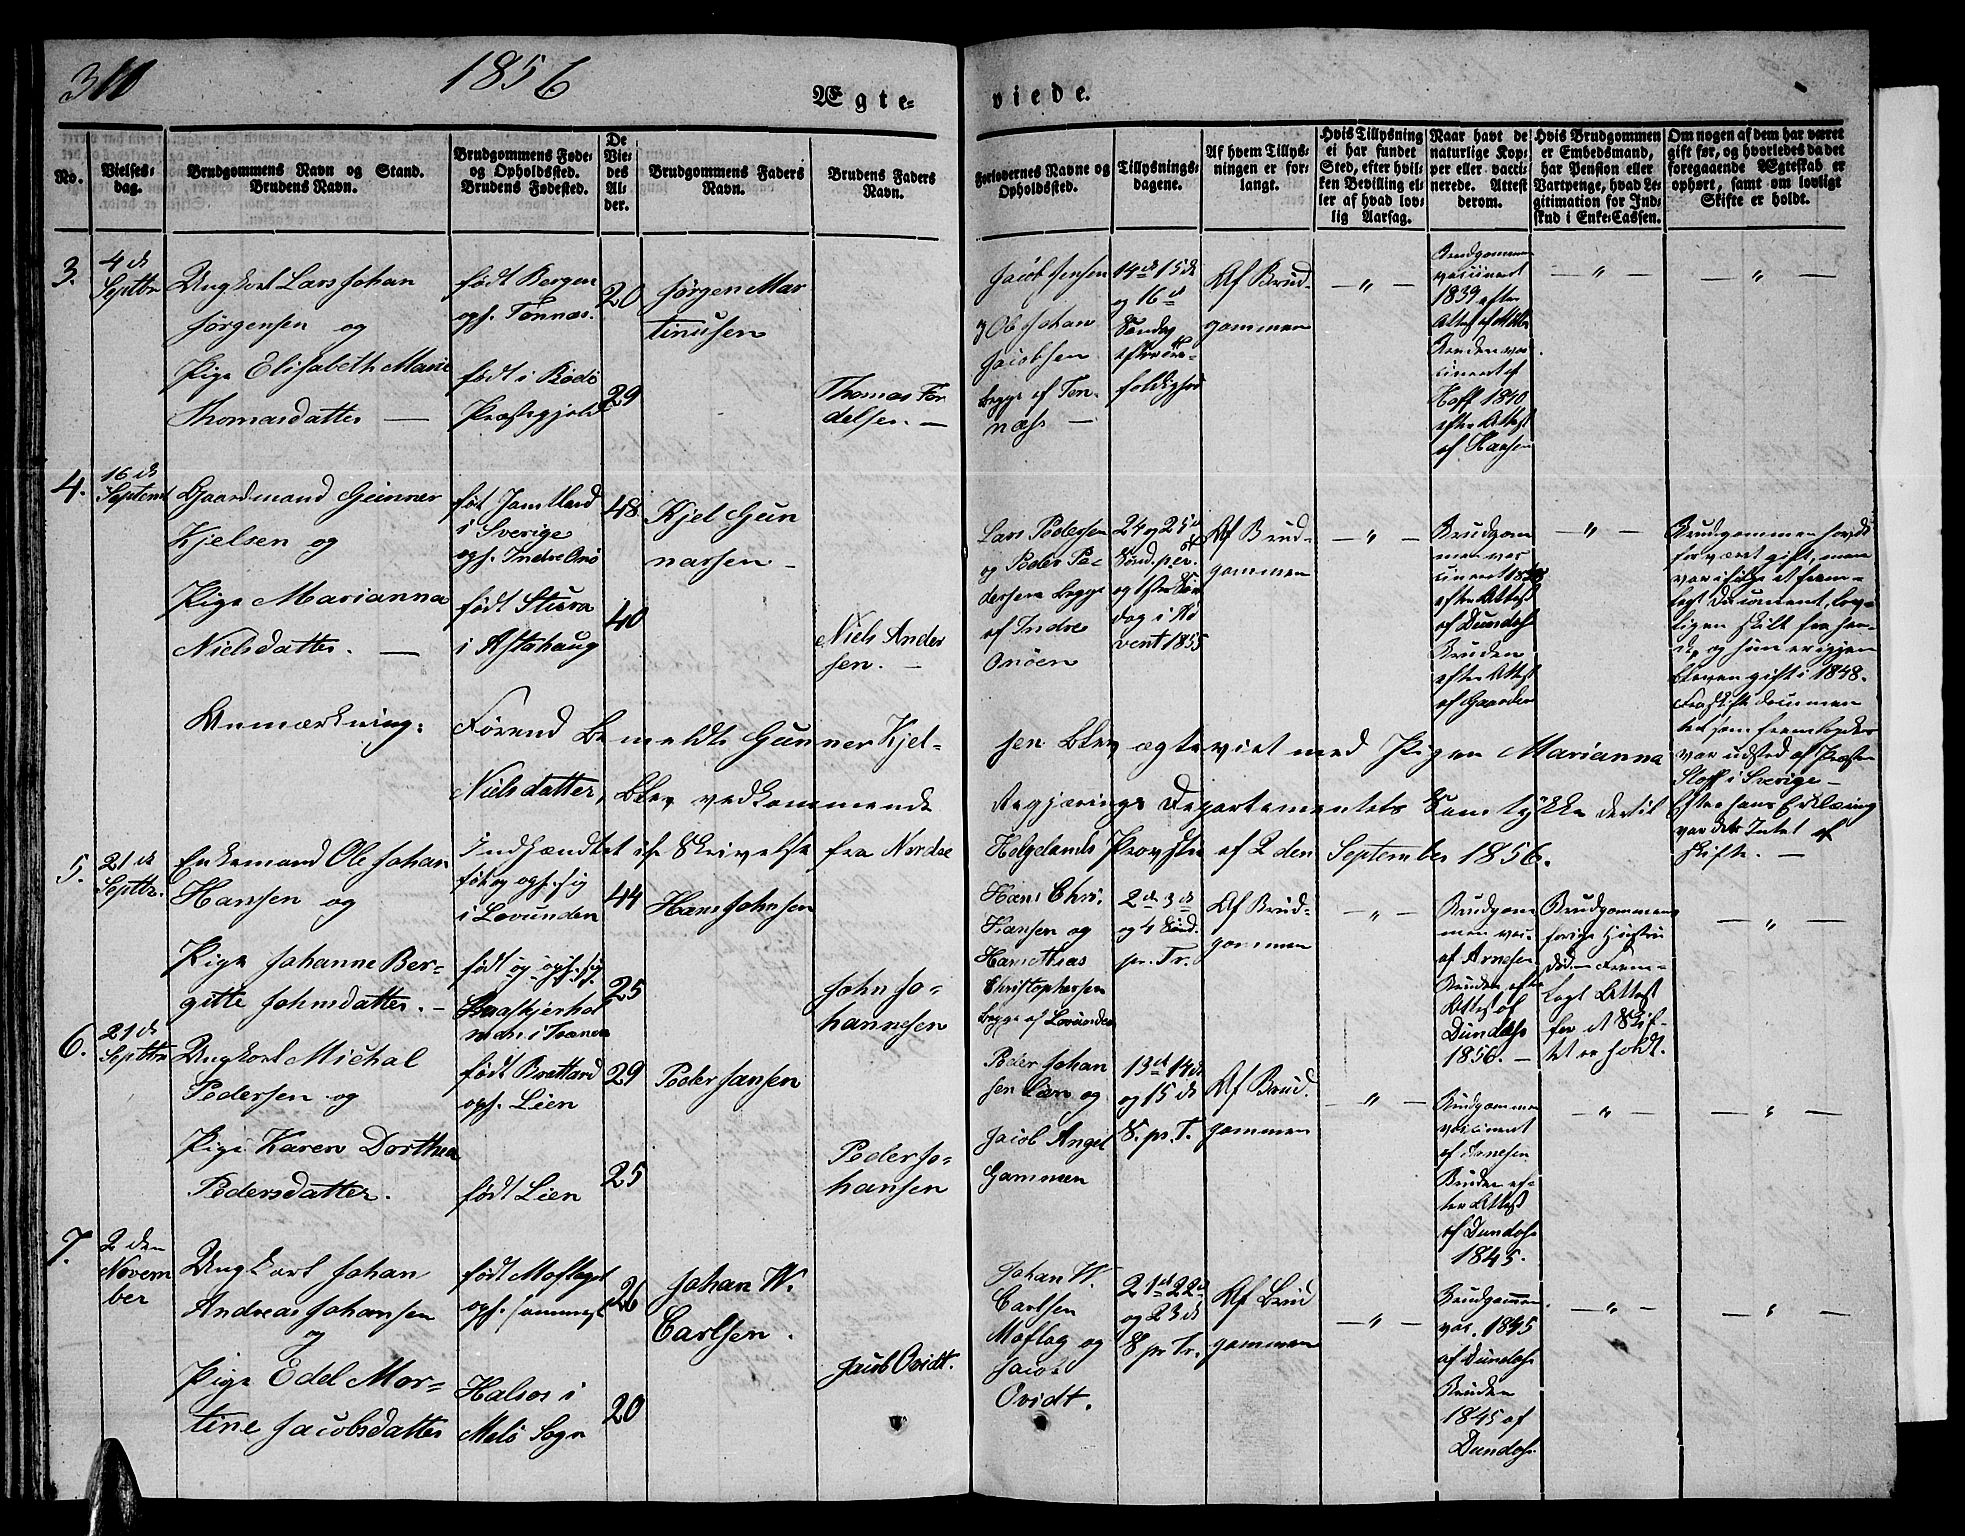 310
1856
Ægte=
viede.
No.
Vielses-
dag.
Brudgommens Navn og Stand.
Brudens Navn.
Brudgommens Føde-
og Opholdssted.
Brudens Fødested.
De
Vie-
des
Al-
der.
Brudgommens Faders
Navn.
Brudens Faders
Navn.
Forlovernes Navne og
Opholdssted.
Tillysnings-
dagene.
Af hvem Tillys-
ningen er for-
langt.
Hvis Tillysning
ei har fundet
Sted, efter hvil-
ken Bevilling el-
ler af hvad lov-
lig Aarsag.
Naar havt de
naturlige Kop-
per eller vacci-
nerede. Attest
derom.
Hvis Brudgommen
er Embedsmand,
har Pension eller
Vartpenge, hvad Le-
gitimation for Ind-
skud i Enke-Cassen.
Om nogen af dem har været
gift før, og hvorledes da det
foregaaende Ægteskab er
ophørt, samt om lovligt
Skifte er holdt.
3.
4 de
Septbr
Ungkarl Lars Johan
Jørgensen og
Pige Elisabeth Marie
Thomasdatter —
født Bergen
oph. Tonnæs.
født i Bodö
Præstegjeld
20
29
Jörgen Mar
tinusen
Thomas For
delsen. —
Jacob Jensen
og Ole Johan
Jacobsen
begge af Ton-
næs —
14de 15de
og 16de
Søndag
efter Tre-
foldighed
Af Brud-
gommen
— „ —
Brudgommen
vaccineret
1839 efter
Attest af
Bruden vac
cineret af
Hoff 1840
efter Attest
af Hansen
— „ —
— „ —
4.
16 de
Septemb
Gaardmand Gunner
Kjelsen og
Pige Marianna
Nielsdatter. —
föt Jamtland
i Sverige
oph. Indre Onö
født Stura
i Alstahaug
48
40
Kjel Gun
narsen —
Niels Ander
sen. —
Lars Pedersen
og Peder Pe-
dersen begge
af Indre
Onöen
24 og 25de
Sönd. p. Tr.
og 1ste Søn
dag i Ad
vent 1855
Af Brud-
gommen
— „ —
Brudgom
men vac
cineret 1828
efter Attest
af Dundas
Bruden
efter Attest
af Gaarden
— „ —
Brudgommen havde
før været gift, men
var ifølge et frem-
lagt Document, lov-
ligen skilt fra hen-
de, og hun er igjen
bleven gift i 1848.
som fremlagdes
var udsted af Præsten
Hoff i Sverige —
Efter hans Erklæring
var der Intet at
skifte. —
Anmærkning:
Førend Bemeldte Gunner Kjel-
sen blev ægteviet med Pigen Marianna
Nielsdatter, blev vedkommende
Regjerings Departementets Samtykke dertil
Indhændtet ifr. Skrivelse fra Nordre
Helgelands Provstie af 2 den September 1856.
5.
21 de
Septbr.
Enkemand Ole Johan
Hansen og
Pige Johanne Ber-
gitte Johnsdatter. —
föt og oph. sig
i Lovunden
født og oph. sig
44
25
Hans Johnsen
John Jo-
hannesen
Hans Chri.
Hansen og
Hans Mthias
Christophersen
begge af Lovunden
2de 3de
og 4 Sönd.
p. Tr.
Af Brud-
gommen
— „ —
Brudgom
men vac.
af Arnesen
Bruden efter
Attest af
Dundas
1856. —
Brudgommens
forige Hustru
død. — Frem-
lagt Attest
for at Skif-
tet er holdt.
— „ —
6.
21 de
Septbr
Ungkarl Michal
Pedersen og
Pige Karen Dorthea
Pedersdatter.
født Bratland
oph. Lien
født Lien
29
25
Peder Jansen
Peder Jo-
hansen
Peder Johan
sen Lien og
Jacob Angel
Gammen
13de 14de
og 15 de
S. p. T.
Af Brud.
gommen
— „ —
Brudgommen
vaccineret
af Arnesen
Bruden ef-
ter Attest
af Dundas
1845.
— „ —
— „ —
7.
2 den
Novem
ber
Ungkarl Johan
Andreas Johansen
og
Pige Edel Mar-
tine Jacobsdatter
født Moflaget
oph. sammest
Halsos i
Melö Sogn
26
20
Johan W.
Carlsen.
Jacob Ovidt.
Johan W.
Carlsen
Moflag og
Jacob
Ovidt.
21de 22de
og 23de
S p Tr.
Af Brud
gommen
— „ —
Brudgommen
vac. 1845
af Dundas
Bruden
1845 af
Dundas.
— „ —
— „ —